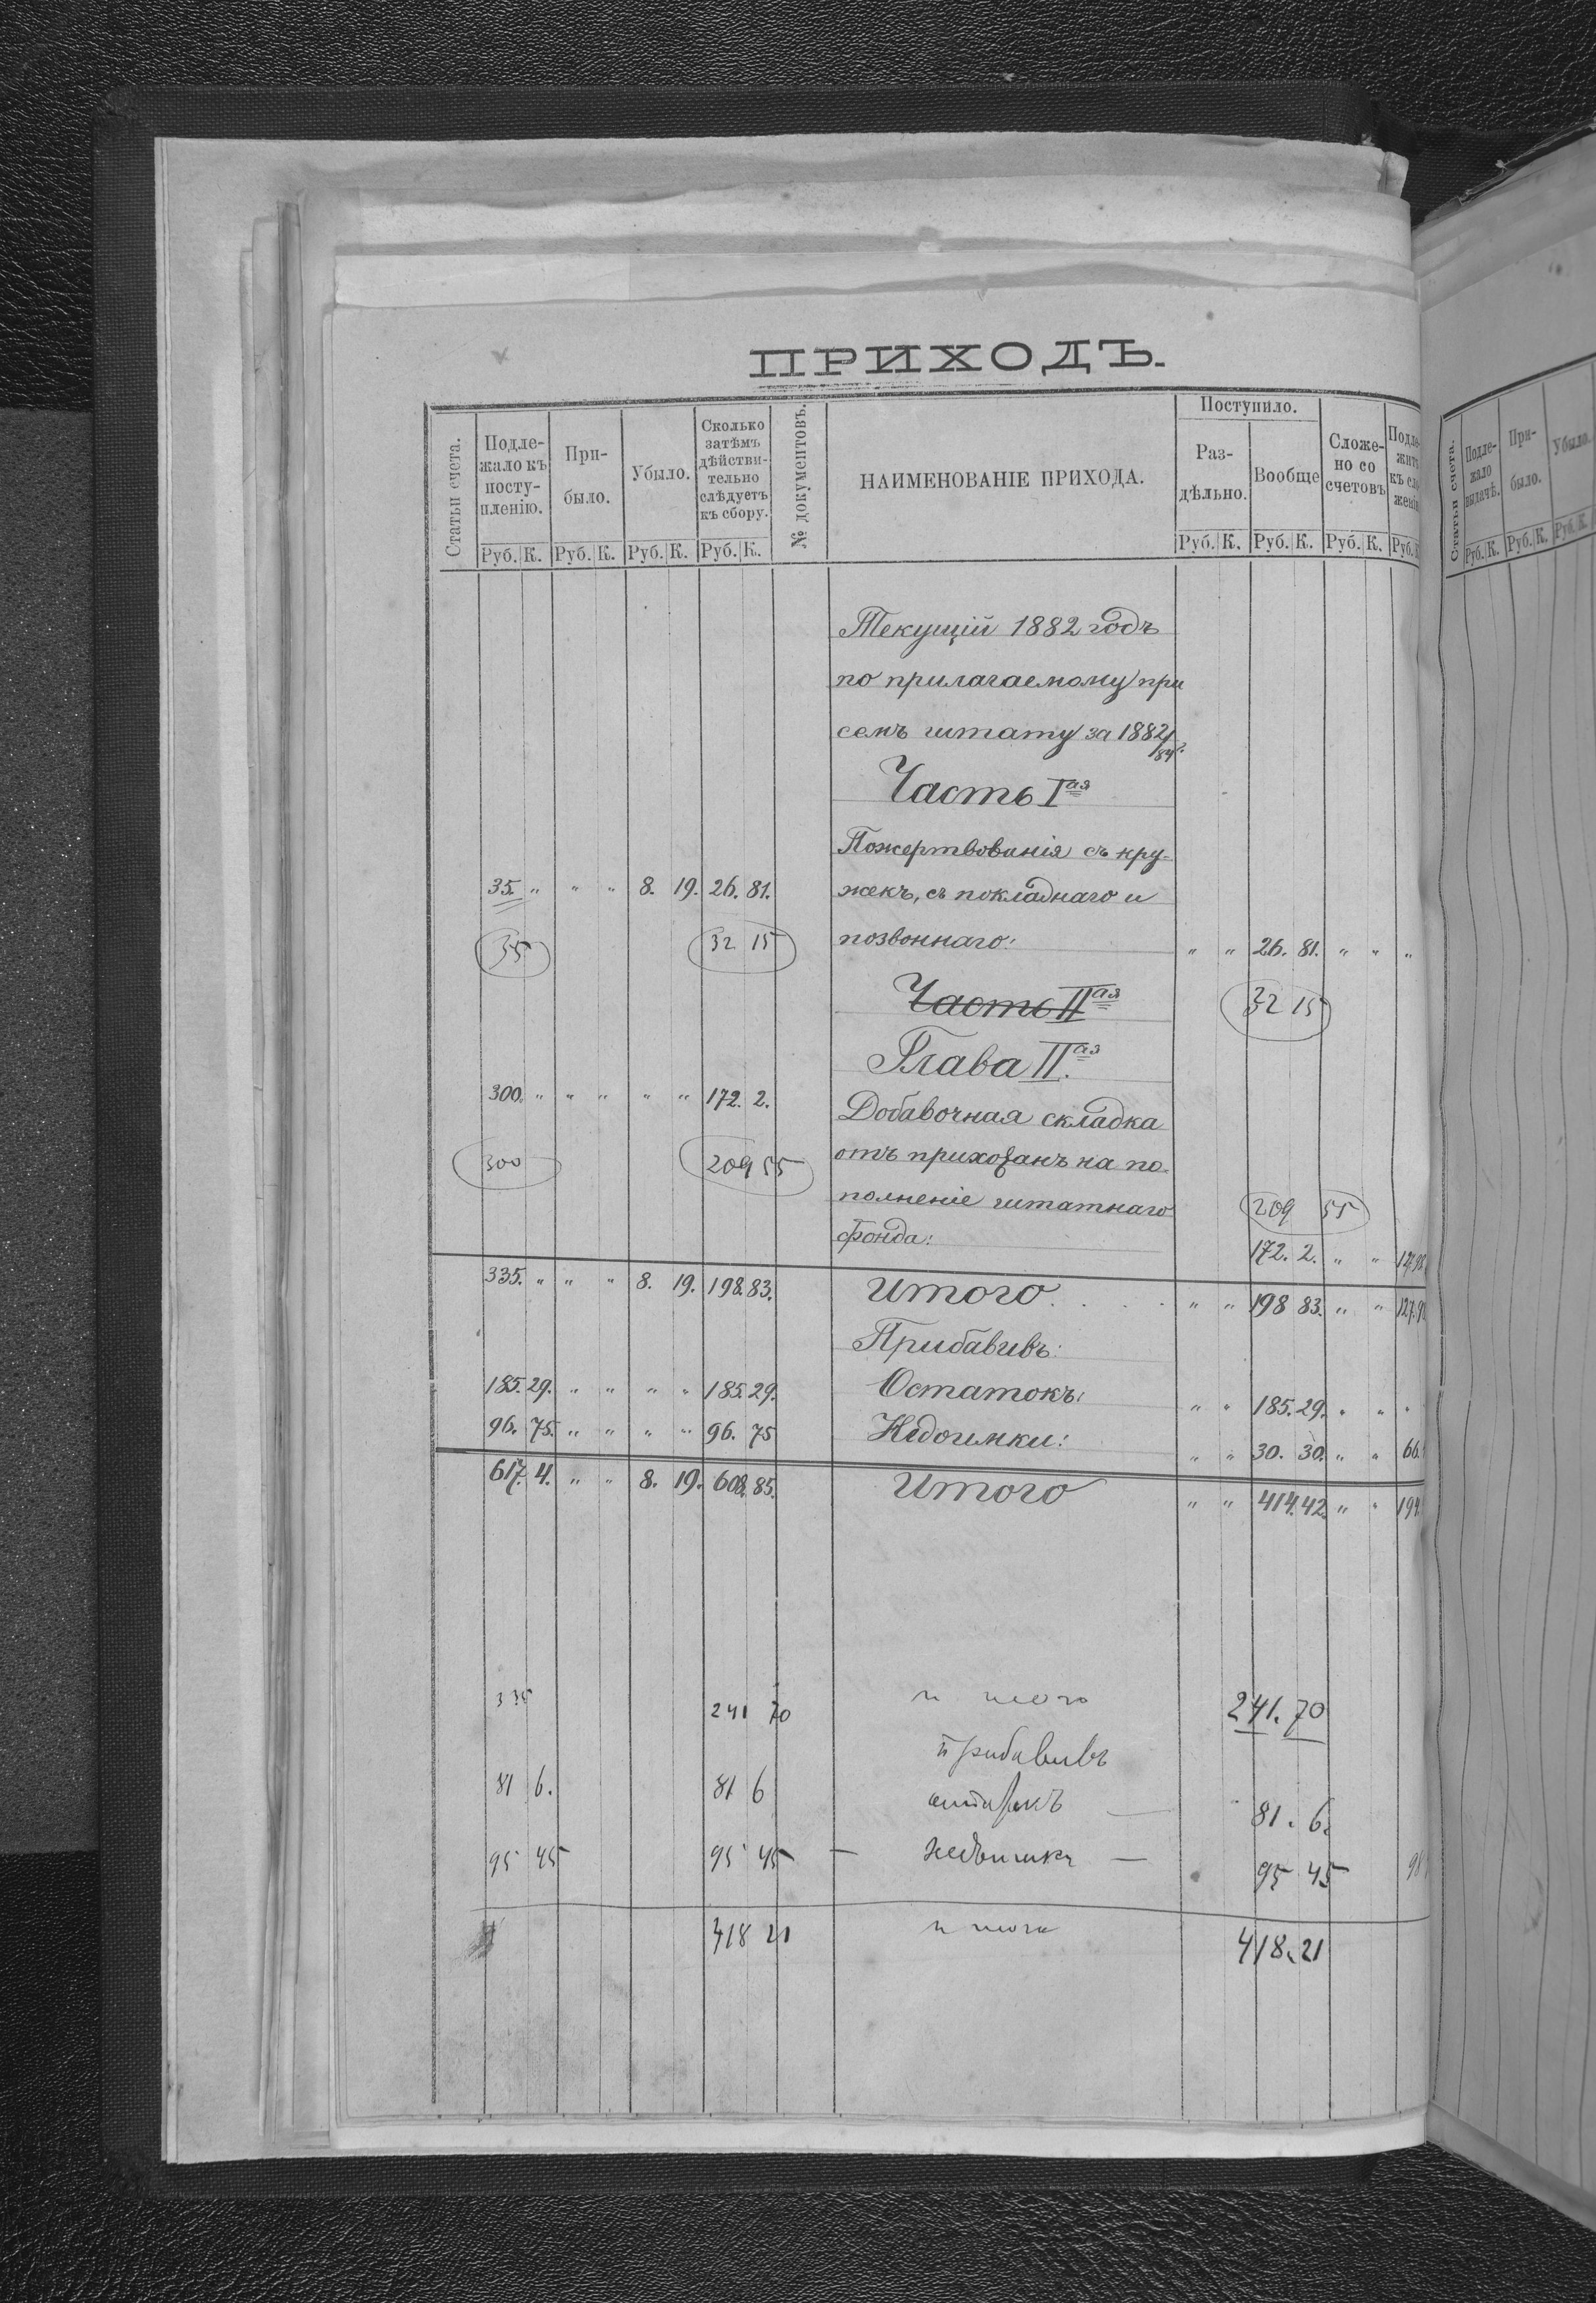 ПРИХОДЪ.
Статьи счета.
Подле-
жало къ
посту-
пленію.
При-
было.
Убыло.
Сколько
затѣмъ
дѣйстви-
тельно
слѣдуетъ
къ сбору.
№ документовъ.
НАИМЕНОВАНІЕ ПРИХОДА.
Поступило.
Раз-
дѣльно.
Вообще
Сложе-
но со
счетовъ
Подле-
жит
къ сло
жені
Руб. К. Руб. К. Руб. К. Руб. К. Руб. К. Руб. К. Руб. К. Руб.
Текущій 1882 годъ
по прилагаемому при
семъ штату за 1882/
84
Часть Iая
Пожертвованія съ кру-
35. " " " 8. 19. 26. 81. жекъ, съ покладнаго и
позвоннаго: " " 26. 81. " " "
35 32 15
Часть IIая 32 15
Глава IIая
300. " " " " " 172. 2. Добавочная складка
300 209 55 отъ прихожанъ на по-
полненіе штатнаго 209 55
фонда: 172. 2. " "
335. " " " 8. 19. 198. 83. Итого . . . . " " 198 83. " "
Прибавивъ:
185. 29. " " " " 185. 29. Остатокъ: " " 185. 29. " " "
96. 75. " " " " 96. 75 Недоимки: " " 30. 30. " " 66.
617. 4. " " 8. 19. 608. 85. Итого " " 414. 42. " " 194.
335 241 70 итого 241. 70
прибавивъ
81 6. 81 6 остатокъ — 81. 6.
95 45 95 45 — недоимки — 95 45
418 21 итого 418. 21
Статьи счета.
Подле-
жало
выдачѣ.
При-
было.
Убыло.
Руб. К. Руб. К. Руб. К.